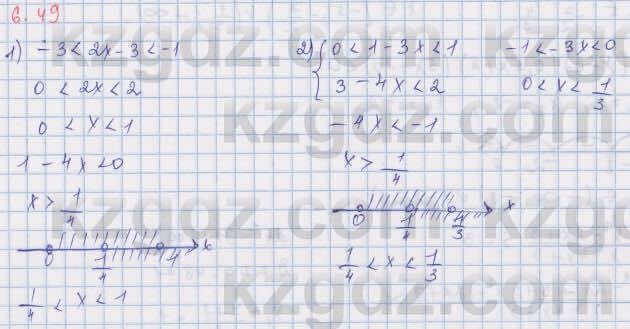 6.49
1) -3<2x-3<-1
0<2x<2
0<x<1
1-4x<0
x>1/4
0 1/4 1 x
1/4<x<1
2) { 0<1-3x<1
3-4x<2
-1<-3x<0
0<x<1/3
-4x<-1
x>1/4
0 1/4 1/3 x
1/4<x<1/3
kzgdz.com
kzgdz.com
kzgdz.com
kzgdz.com